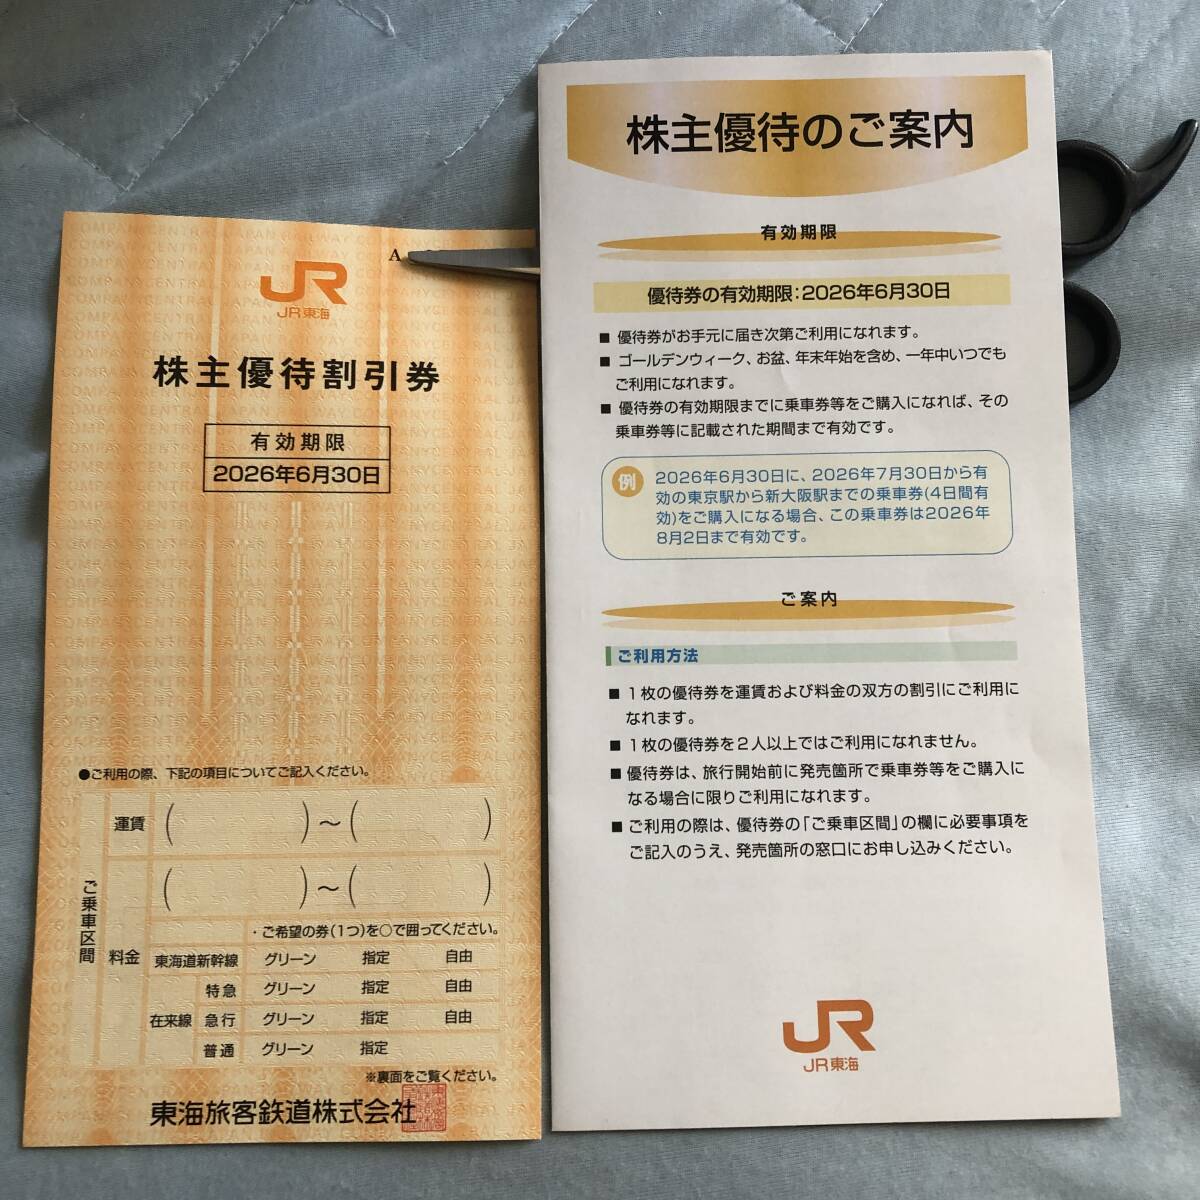 A
JR
JR東海
株主優待割引券
有効期限
2026年6月30日
●ご利用の際、下記の項目についてご記入ください。
ご乗車区間
運賃 ( )～( )
料金 ( )～( )
・ご希望の券(1つ)を○で囲ってください。
東海道新幹線 グリーン 指定 自由
在来線 特急 グリーン 指定 自由
急行 グリーン 指定 自由
普通 グリーン 指定
※裏面をご覧ください。
東海旅客鉄道株式会社
株主優待のご案内
有効期限
優待券の有効期限:2026年6月30日
■ 優待券がお手元に届き次第ご利用になれます。
■ ゴールデンウィーク、お盆、年末年始を含め、一年中いつでも
ご利用になれます。
■ 優待券の有効期限までに乗車券等をご購入になれば、その
乗車券等に記載された期間まで有効です。
例
2026年6月30日に、2026年7月30日から有
効の東京駅から新大阪駅までの乗車券(4日間有
効)をご購入になる場合、この乗車券は2026年
8月2日まで有効です。
ご案内
ご利用方法
■ 1枚の優待券を運賃および料金の双方の割引にご利用に
なれます。
■ 1枚の優待券を2人以上ではご利用になれません。
■ 優待券は、旅行開始前に発売箇所で乗車券等をご購入に
なる場合に限りご利用になれます。
■ ご利用の際は、優待券の「ご乗車区間」の欄に必要事項を
ご記入のうえ、発売箇所の窓口にお申し込みください。
JR
JR東海